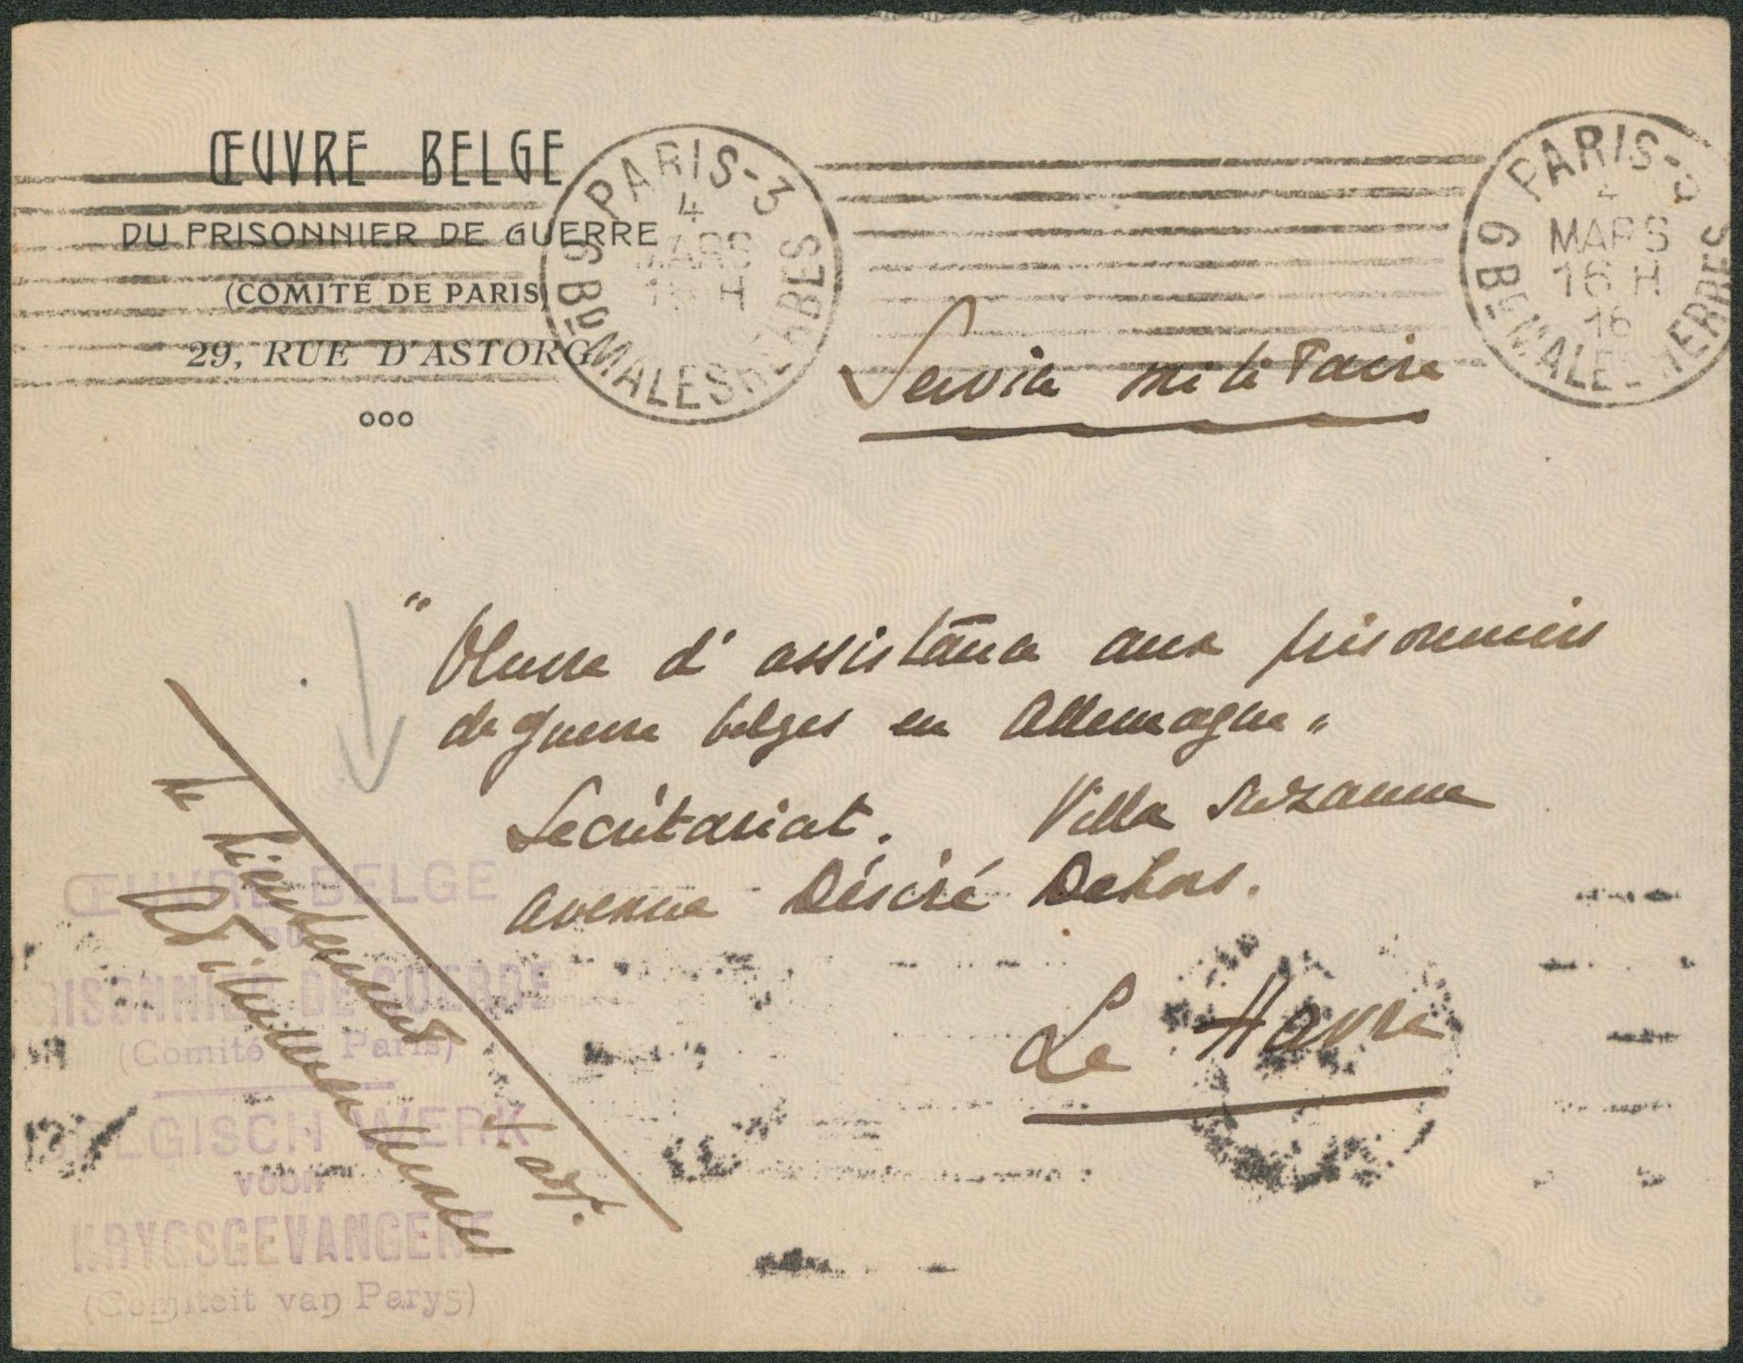 ŒUVRE BELGE
DU PRISONNIER DE GUERRE
(COMITÉ DE PARIS)
29, RUE D'ASTORG
ooo
PARIS-3
4
MARS
16 H
6 BD MALESHERBES
PARIS-3
4
MARS
16 H
16
6 BD MALESHERBES
Service militaire
"Œuvre d'assistance aux prisonniers
de guerre belges en Allemagne"
Secrétariat. Villa Suzanne
Avenue Désiré Dehors.
Le Havre
Le Lieutenant
ŒUVRE BELGE
DU
PRISONNIER DE GUERRE
(Comité de Paris)
BELGISCH WERK
VOOR
KRYGSGEVANGENE
(Comiteit van Parys)